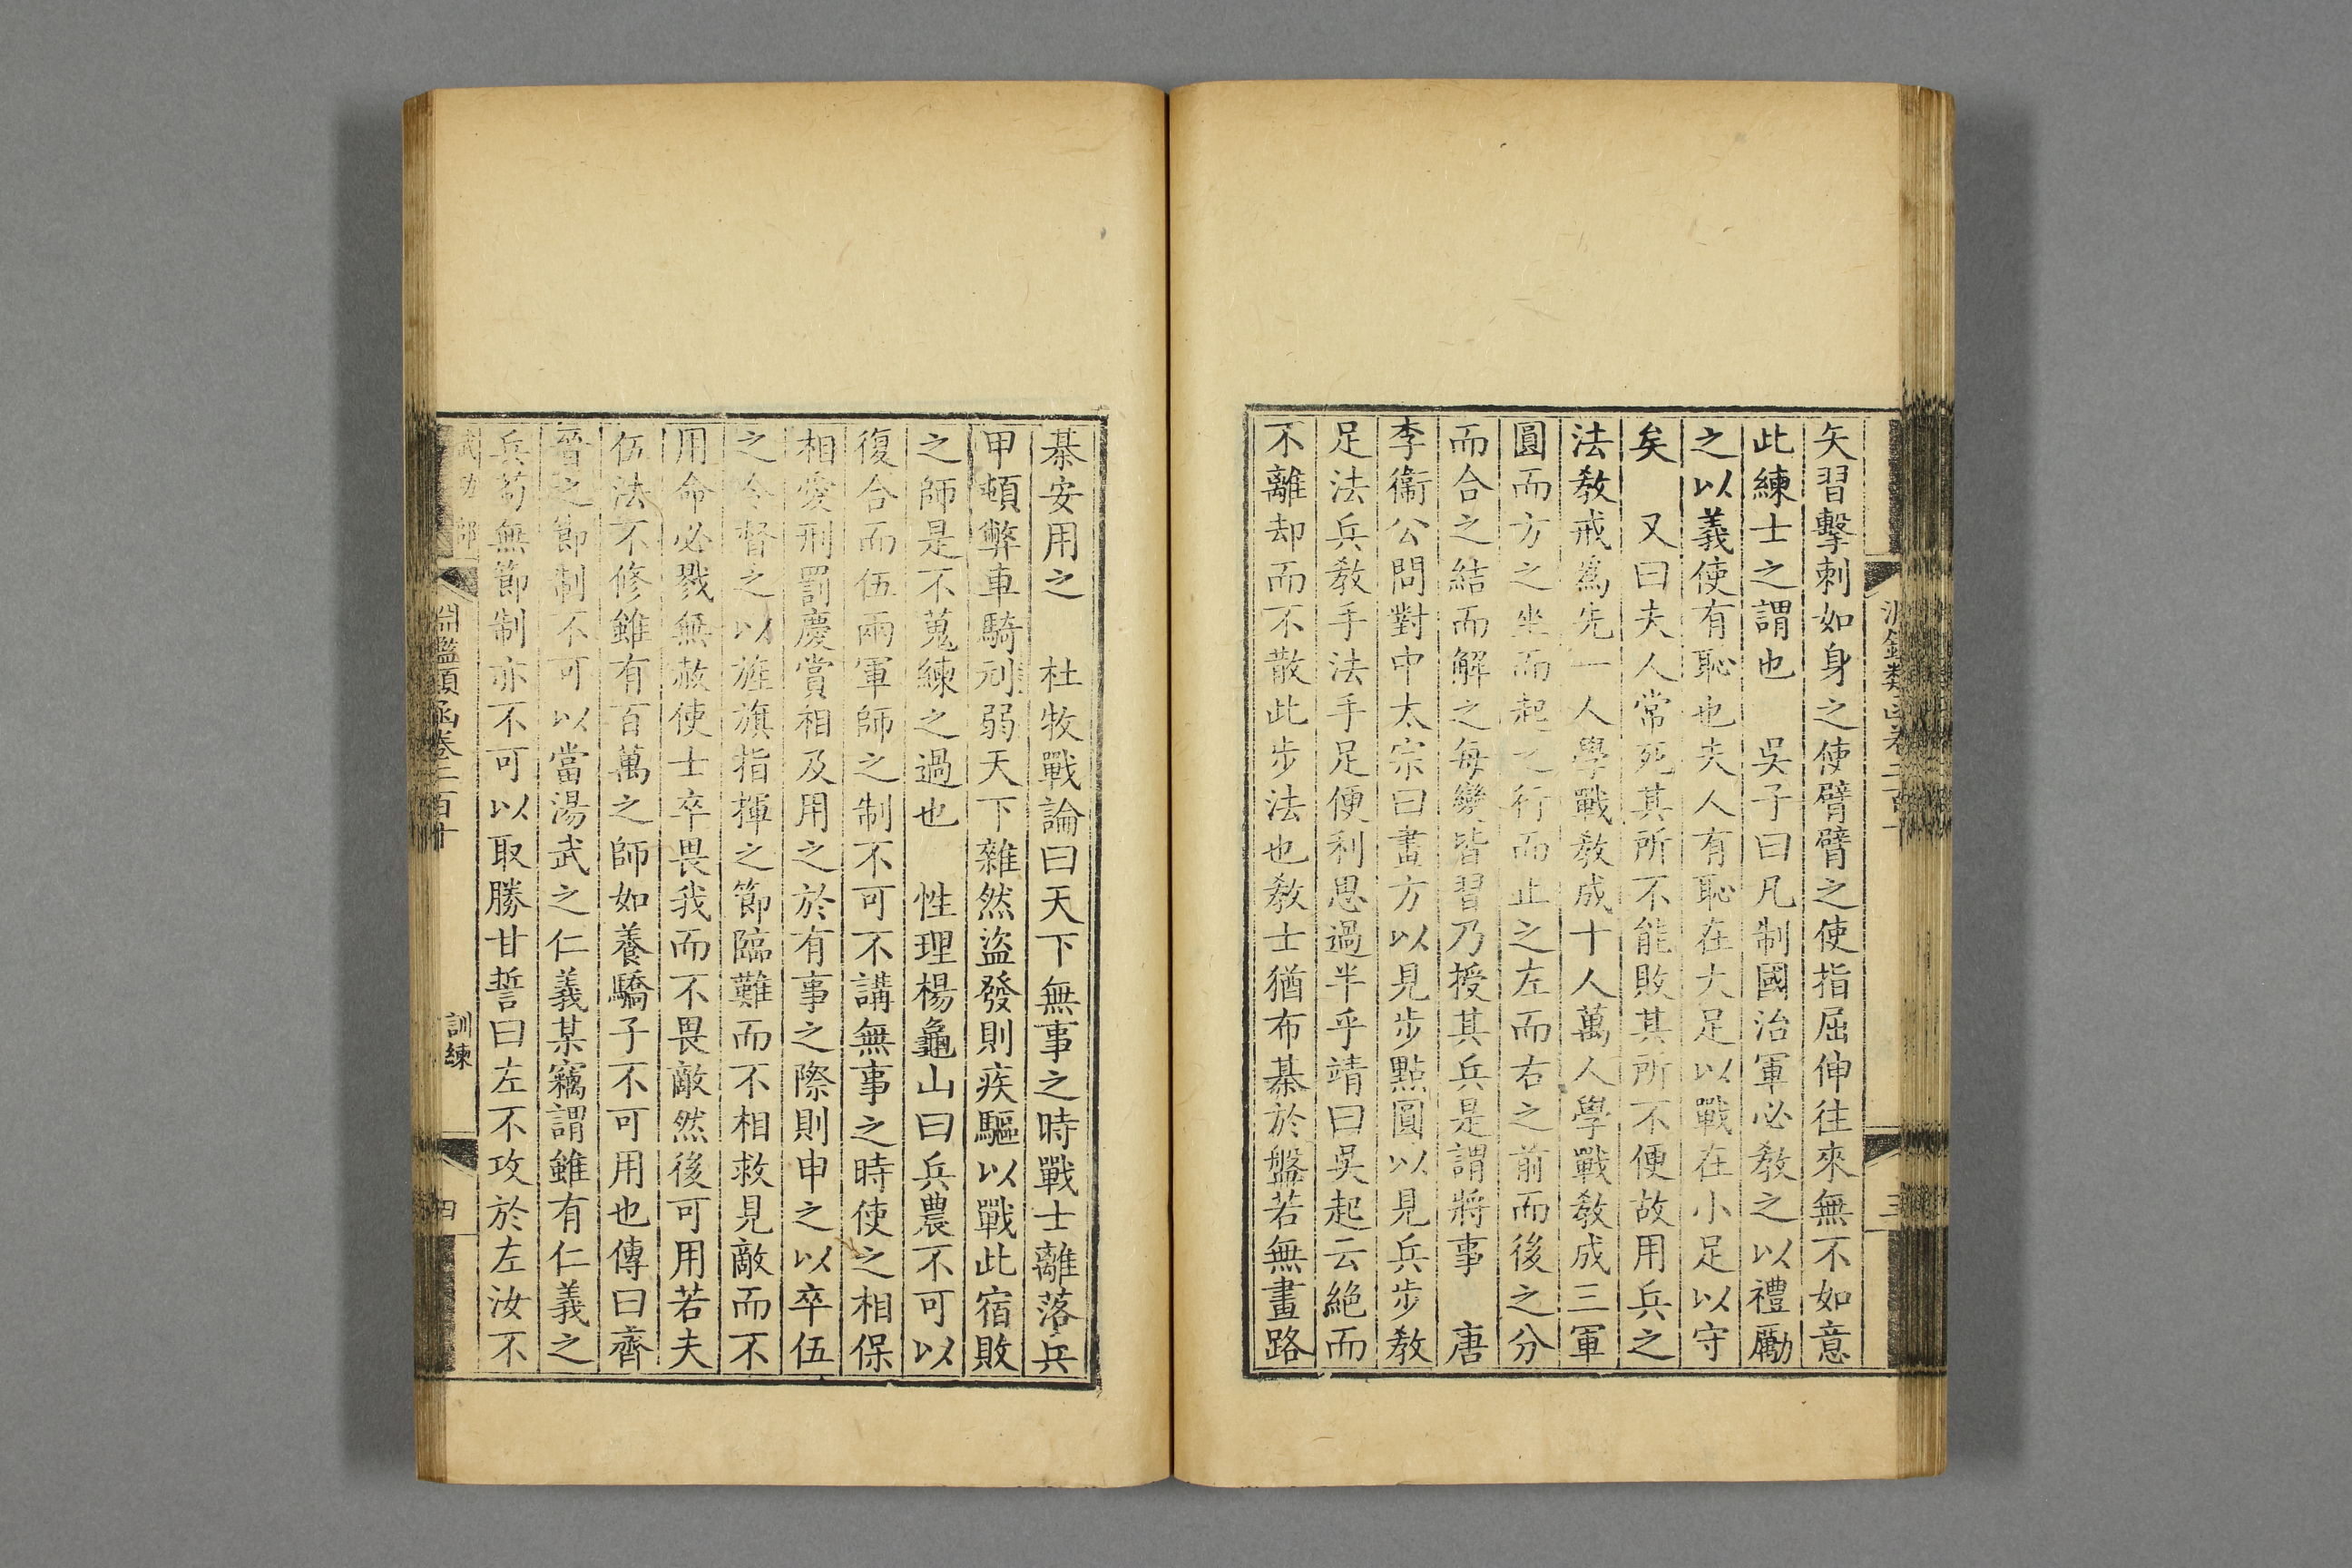 矢習擊刺如身之使臂臂之使指屈伸往來無不如意
此練士之謂也　吳子曰凡制國治軍必敎之以禮勵
之以義使有恥也夫人有恥在大足以戰在小足以守
矣　又曰夫人常死其所不能敗其所不便故用兵之
法敎戒爲先一人學戰敎成十人萬人學戰敎成三軍
圓而方之坐而起之行而止之左而右之前而後之分
而合之結而解之每變皆習乃授其兵是謂將事　唐
李衞公問對中太宗曰畫方以見步點圓以見兵步敎
足法兵敎手法手足便利思過半乎靖曰吳起云絶而
不離却而不散此步法也敎士猶布棊於盤若無畫路
棊安用之　杜牧戰論曰天下無事之時戰士離落兵
甲頓弊車騎刓弱天下雜然盜發則疾驅以戰此宿敗
之師是不蒐練之過也　性理楊龜山曰兵農不可以
復合而伍兩軍師之制不可不講無事之時使之相保
相愛刑罰慶賞相及用之於有事之際則申之以卒伍
之令督之以旌旗指揮之節臨難而不相救見敵而不
用命必戮無赦使士卒畏我而不畏敵然後可用若夫
伍法不修雖有百萬之師如養驕子不可用也傳曰齊
晉之節制不可以當湯武之仁義某竊謂雖有仁義之
兵苟無節制亦不可以取勝甘誓曰左不攻於左汝不
武功部
淵鑑類函卷二百十
訓練
四